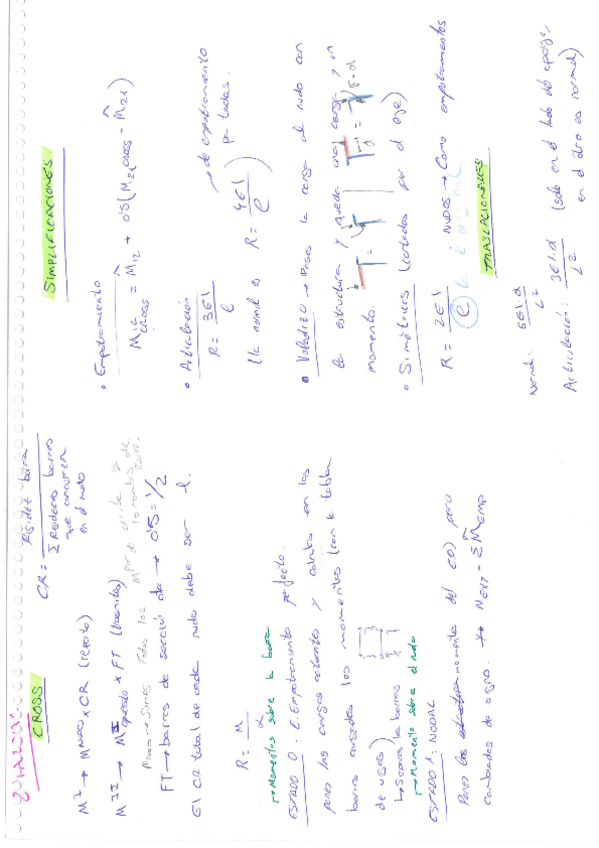 CROSS
CR = Rigidez barra
Σ Rigideces barras
que concurren
en el nudo
M^I → M nudo x CR (reparto)
M^II → M^I reparto x FT (transmitido)
FT → barras de sección cte → 0'5 = 1/2
El CR total de cada nudo debe ser 1.
R = M
→ Momentos sobre la barra
ESTADO 0: E. Empotramiento perfecto.
pones las cargas actuantes y calculas en las
barras cargadas los momentos (con la tabla
de vigas)
↳ Separa las barras
→ Momento sobre el nudo
ESTADO 1: NODAL
Pones los momentos del E0) pero
cambiados de signo.
SIMPLIFICACIONES
• Empotramiento
M12 CROSS = M̂12 + 0'5(M21 CROSS - M̂21)
• Articulación
→ de empotramiento
R = 3EI
l
(la normal es R = 4EI
l )
• Voladizo → Pasas la carga al nudo con
la estructura y queda una carga y un
momento.
F·d
• Simétricas (cortadas por el eje)
R = 2EI
l
NUDOS → Como empotramientos
TRASLACIONALES
Normal: 6EI.d
L²
Articulación: 3EI.d
L²
(solo en el lado del apoyo,
en el otro es normal)